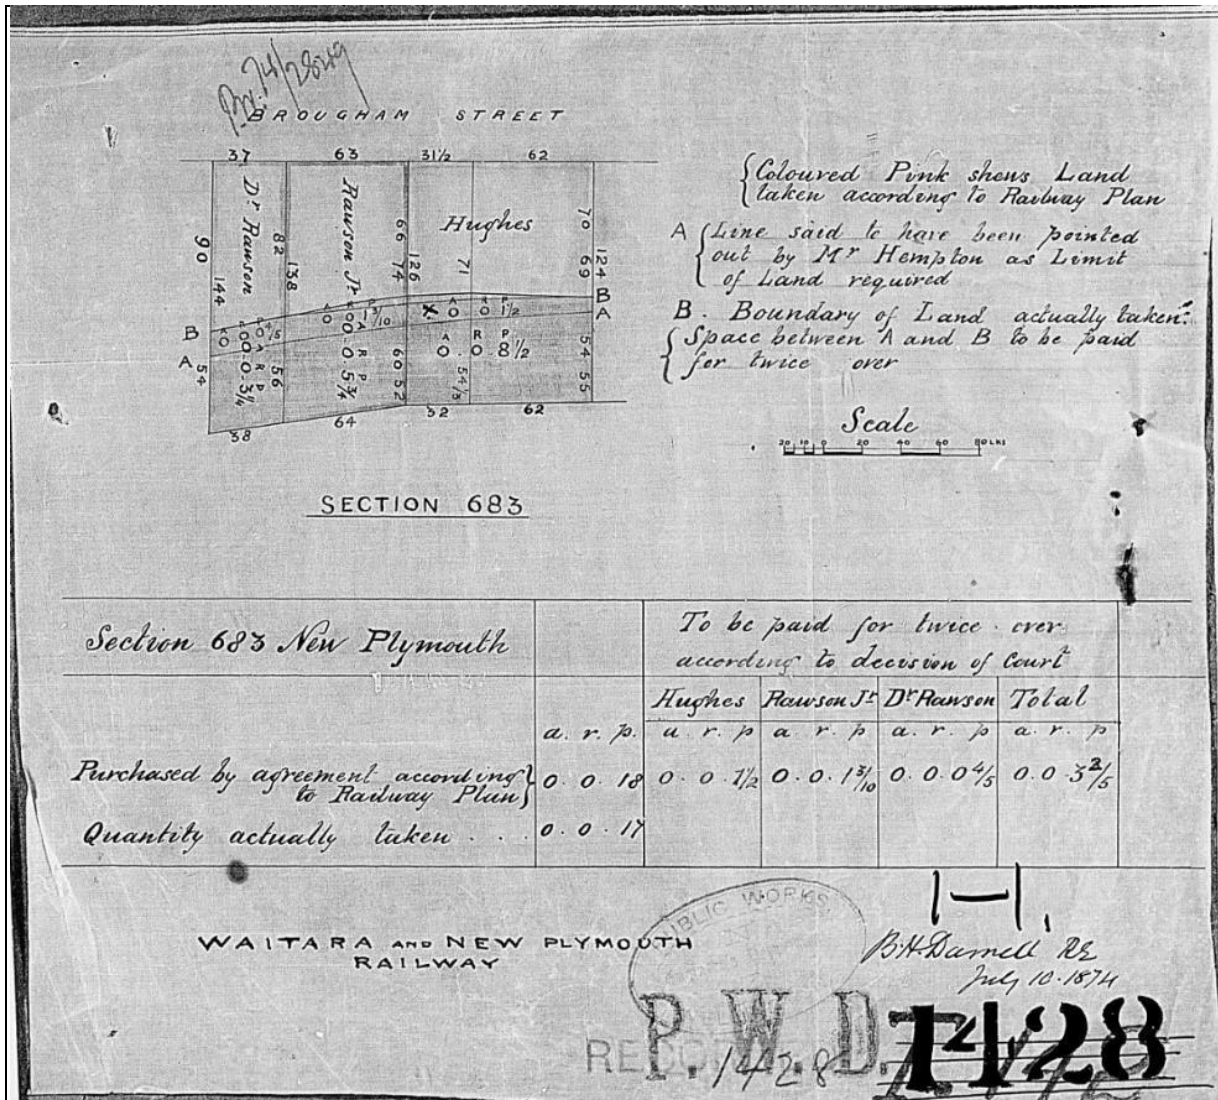 P.W. 74/2849
BROUGHAM STREET
37 63 31½ 62
Dr Rawson
Rawson Jr
Hughes
90 144 82 138 66 74 126 71 70 69 124
B
A
B
A
A R P
0 0 0 4/5
A R P
0 0 1 3/10
A R P
0 0 1½
A R P
0 . 0 8½
A R P
0.0.5¾
A R P
0.0.3¼
54 56 60 52 54½ 54 55
38 64 32 62
Coloured Pink shews Land
taken according to Railway Plan
A Line said to have been pointed
out by Mr Hempton as Limit
of Land required
B. Boundary of Land actually taken.
Space between A and B to be paid
for twice over
Scale
20 10 0 20 40 60 80 LKS
SECTION 683
Section 683 New Plymouth
To be paid for twice over
according to decision of Court
Hughes Rawson Jr Dr Rawson Total
a. r. p. a. r. p a. r. p a. r. p a. r. p
Purchased by agreement according
to Railway Plan
0. 0. 18 0. 0. 1½ 0. 0. 1 3/10 0. 0. 0 4/5 0. 0 3 2/5
Quantity actually taken . . . 0. 0. 17
WAITARA AND NEW PLYMOUTH
RAILWAY
PUBLIC WORKS
B.H. Darnell RE
July 10. 1874
P. W. D. 1428
1428